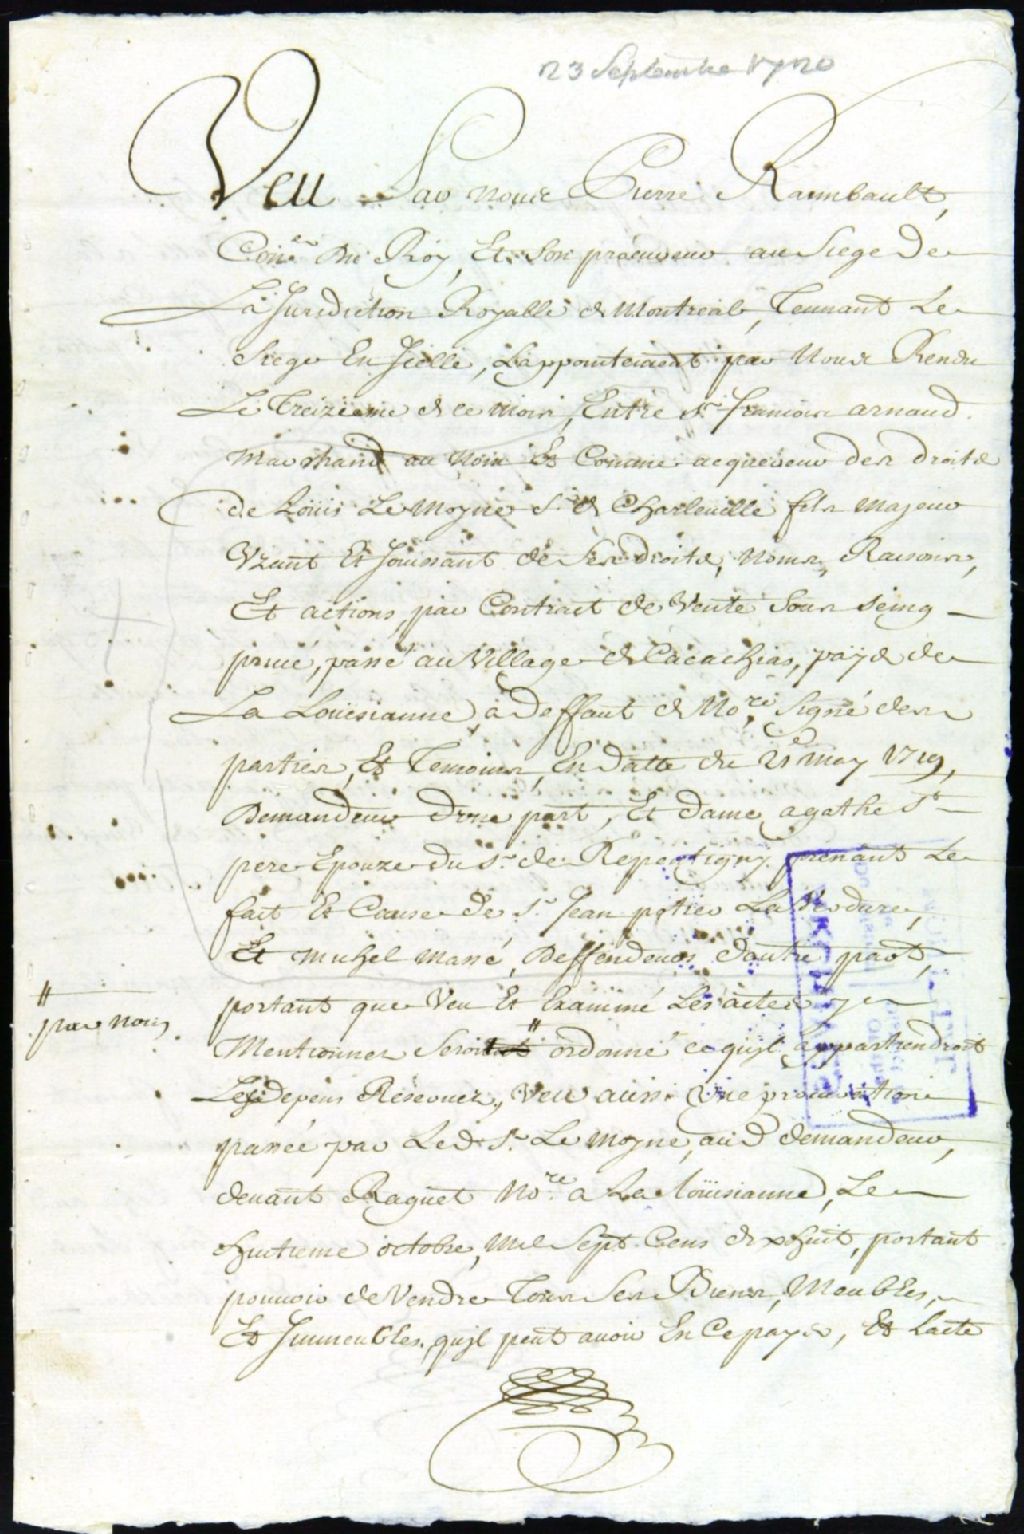 23 Septembre 1720
Veu Par nous Pierre Raimbault,
Con.er Du Roy, Et Son procureur au Siege De
La Jurisdiction Royalle de Montreal, Tennant Le
Siege En Icelle, Lappointement par Nous Rendu
Le Treizieme de ce mois, Entre Sr. francois arnaud
Marchand au Nom Et Comme acquereur des droits
de Loüis Le Moyne Sr. de Charleuille fils Majeur
Vzant Et Joüissant de Ses droits, Noms, Raisons,
Et actions, par Contract de Vente Sous Seing
priué, passé au Village de Cacachias, pays de
La Loüisianne, a Deffaut de No.re Signé des
parties, Et Temoins, En datte du 21e may 1719,
Demandeur d'une part, Et dame agathe St.
pere Epouze du Sr. de Repentigny prenant Le
fait Et Cause de Sr. Jean potier La Verdure,
Et Michel Massé, Deffendeurs d'autre part,
portant que Veu Et Examiné Les actes y
Mentionnez Seroit " ordonné ce quil appartiendroit
" par nous
Les depens Reseruez, Veu aussi Vne procuration
passée par Led. Sr. Le Moyne, aud. demandeur,
deuant Raguet No.re a La Loüisianne, Le
huitieme octobre, Mil Sept Cens dixhuit, portant
pouuoir de Vendre Tous Ses Biens, Meubles,
Et Immeubles, quil peut auoir En Ce pays, Et Lacte